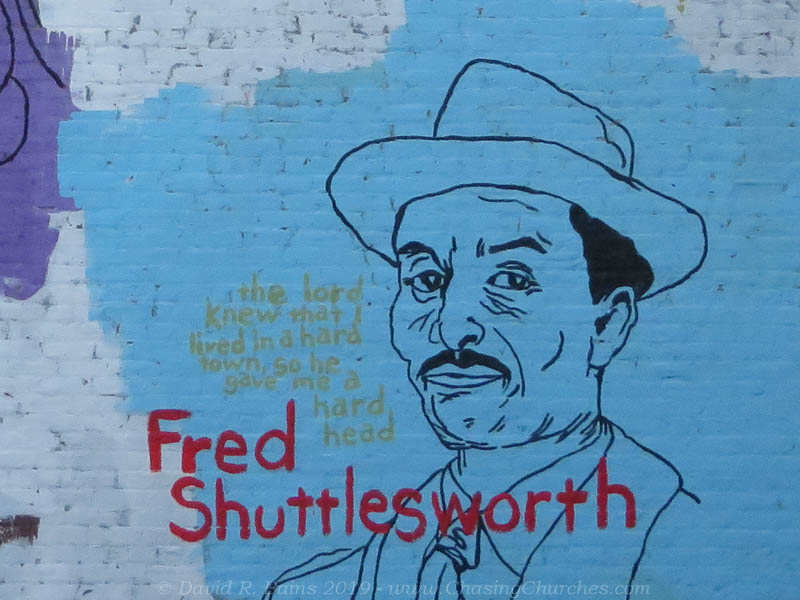 the lord
knew that I
lived in a hard
town, so he
gave me a
hard
head
Fred
Shuttlesworth
© David R. Bains 2019 - www.ChasingChurches.com